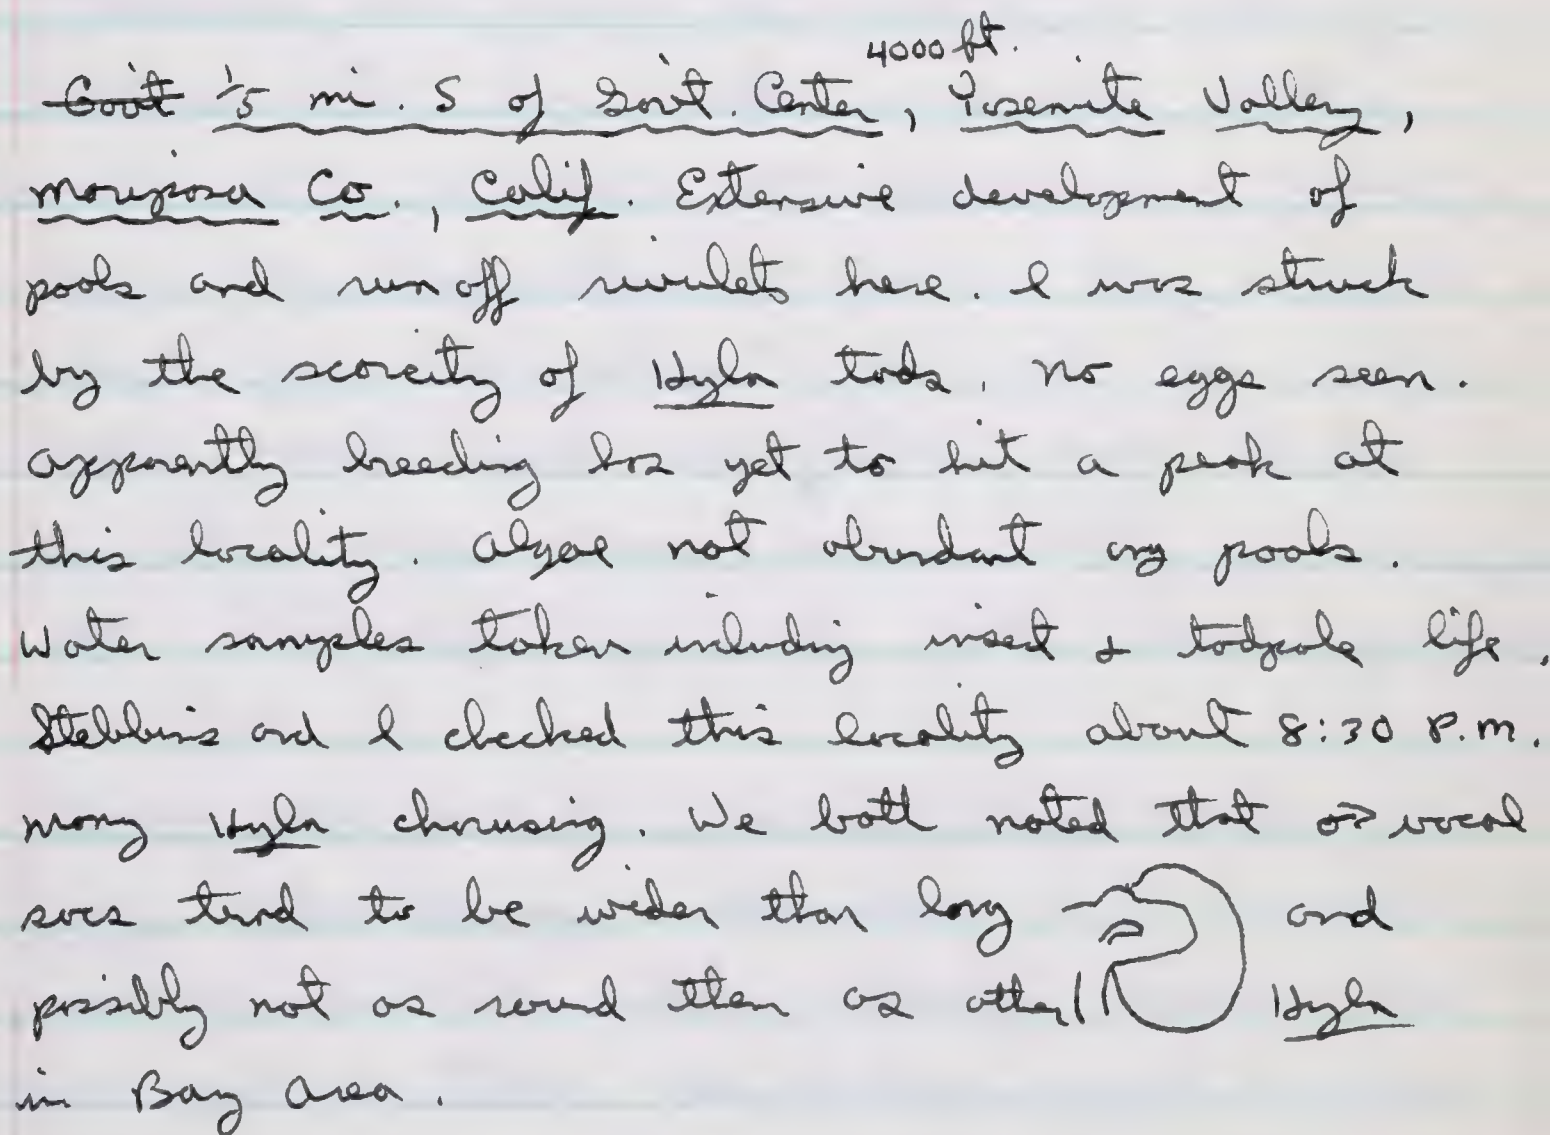 4000 ft.
Gov't 1/5 mi. S of Gov't. Center, Yosemite Valley,
Mariposa Co., Calif. Extensive development of
pools and run off rivulets here. I was struck
by the scarcity of Hyla tads. No eggs seen.
Apparently breeding has yet to hit a peak at
this locality. Algae not abundant any pools.
Water samples taken including insect & tadpole life.
Stebbins and I checked this locality about 8:30 P.M.
Many Hyla chorusing. We both noted that ♂ vocal
sacs tend to be wider than long and
possibly not as round then as other Hyla
in Bay Area.